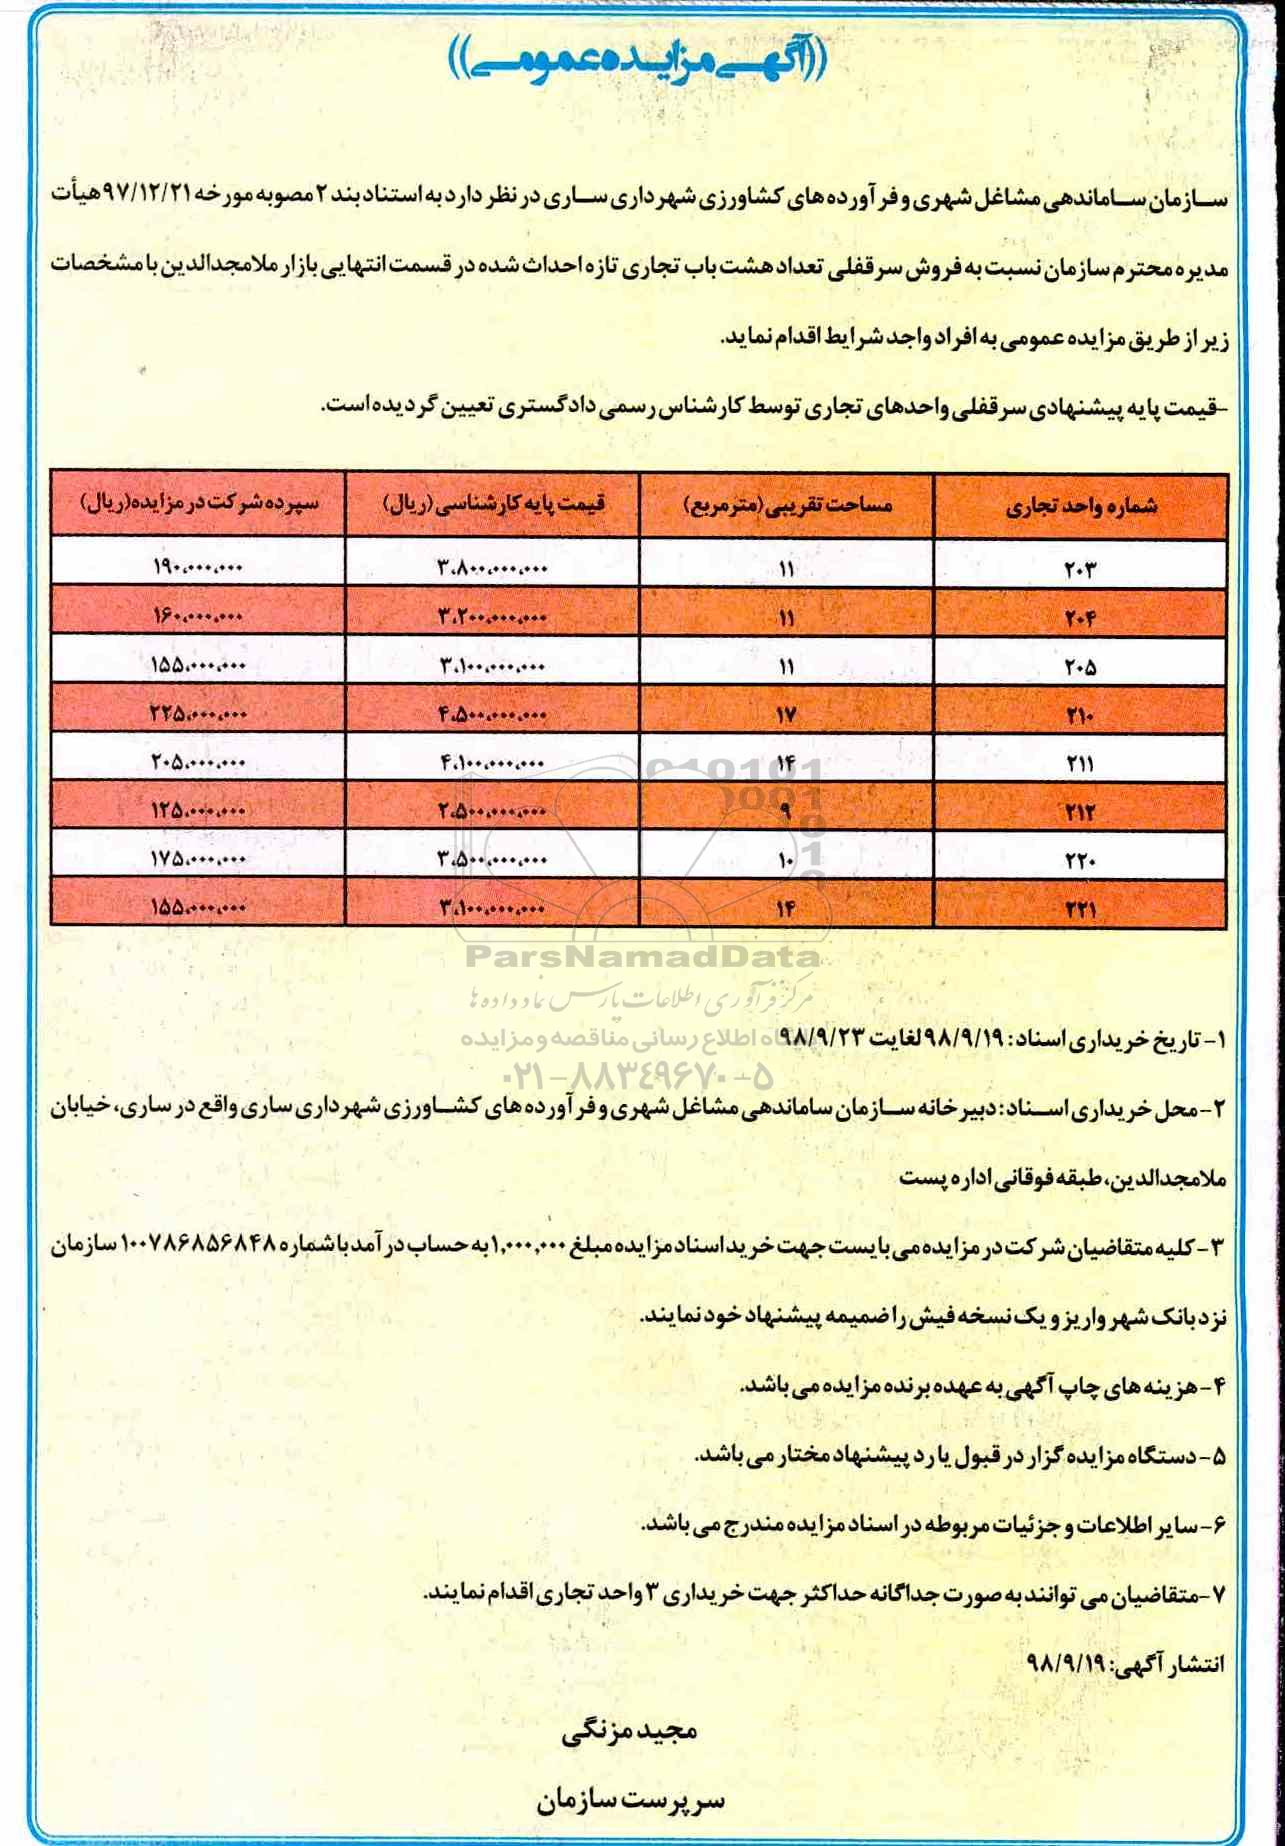 ((آگهی مزایده عمومی))
سازمان ساماندهی مشاغل شهری و فرآورده های کشاورزی شهرداری ساری در نظر دارد به استناد بند ۲ مصوبه مورخه ۹۷/۱۲/۲۱ هیأت
مدیره محترم سازمان نسبت به فروش سرقفلی تعداد هشت باب تجاری تازه احداث شده در قسمت انتهایی بازار ملامجدالدین با مشخصات
زیر از طریق مزایده عمومی به افراد واجد شرایط اقدام نماید.
-قیمت پایه پیشنهادی سرقفلی واحدهای تجاری توسط کارشناس رسمی دادگستری تعیین گردیده است.
شماره واحد تجاری مساحت تقریبی (مترمربع) قیمت پایه کارشناسی (ریال) سپرده شرکت در مزایده(ریال)
۲۰۳ ۱۱ ۳،۸۰۰،۰۰۰،۰۰۰ ۱۹۰،۰۰۰،۰۰۰
۲۰۴ ۱۱ ۳،۲۰۰،۰۰۰،۰۰۰ ۱۶۰،۰۰۰،۰۰۰
۲۰۵ ۱۱ ۳،۱۰۰،۰۰۰،۰۰۰ ۱۵۵،۰۰۰،۰۰۰
۲۱۰ ۱۷ ۴،۵۰۰،۰۰۰،۰۰۰ ۲۲۵،۰۰۰،۰۰۰
۲۱۱ ۱۴ ۴،۱۰۰،۰۰۰،۰۰۰ ۲۰۵،۰۰۰،۰۰۰
۲۱۲ ۹ ۲،۵۰۰،۰۰۰،۰۰۰ ۱۲۵،۰۰۰،۰۰۰
۲۲۰ ۱۰ ۳،۵۰۰،۰۰۰،۰۰۰ ۱۷۵،۰۰۰،۰۰۰
۲۲۱ ۱۴ ۳،۱۰۰،۰۰۰،۰۰۰ ۱۵۵،۰۰۰،۰۰۰
ParsNamadData
مرکز فرآوری اطلاعات پارس نماد داده ها
۱- تاریخ خریداری اسناد: ۹۸/۹/۱۹ لغایت ۹۸/۹/۲۳
اطلاع رسانی مناقصه و مزایده
۰۲۱-۸۸۳۴۹۶۷۰-۵
۲- محل خریداری اسناد: دبیرخانه سازمان ساماندهی مشاغل شهری و فرآورده های کشاورزی شهرداری ساری واقع در ساری، خیابان
ملامجدالدین، طبقه فوقانی اداره پست
۳- کلیه متقاضیان شرکت در مزایده می بایست جهت خرید اسناد مزایده مبلغ ۱,۰۰۰,۰۰۰ به حساب درآمد با شماره ۱۰۰۷۸۶۸۵۶۸۴۸ سازمان
نزد بانک شهر واریز و یک نسخه فیش را ضمیمه پیشنهاد خود نمایند.
۴- هزینه های چاپ آگهی به عهده برنده مزایده می باشد.
۵- دستگاه مزایده گزار در قبول یا رد پیشنهاد مختار می باشد.
۶- سایر اطلاعات و جزئیات مربوطه در اسناد مزایده مندرج می باشد.
۷- متقاضیان می توانند به صورت جداگانه حداکثر جهت خریداری ۳ واحد تجاری اقدام نمایند.
انتشار آگهی: ۹۸/۹/۱۹
مجید مزنگی
سرپرست سازمان